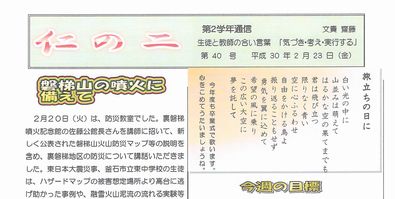 仁の二
第2学年通信
文責 齋藤
生徒と教師の合い言葉 「気づき・考え・実行する」
第 40 号 平成 30 年 2 月 23 日（金）
磐梯山の噴火に
備えて
2月20日（火）は、防災教室でした。裏磐梯
噴火記念館の佐藤公館長さんを講師に招いて、新
しく公表された磐梯山火山防災マップ等の説明を
含め、裏磐梯地区の防災について講話いただきま
した。東日本大震災で、釜石市立東中学校の生徒
は、ハザードマップの被害想定場所より高台に逃
げ助かった事例や、融雪火山泥流の流れる実験等
旅立ちの日に
白い光の中に
山並みは萌えて
はるかな空の果てまでも
君は飛び立つ
限りなく青い
空に心ふるわせ
自由をかける鳥よ
振り返ることもせず
勇気を翼に込めて
希望の風に乗り
この広い大空に
夢を託して
今年度も卒業式で歌います。
心をこめてうたいましょうね。
今週の目標